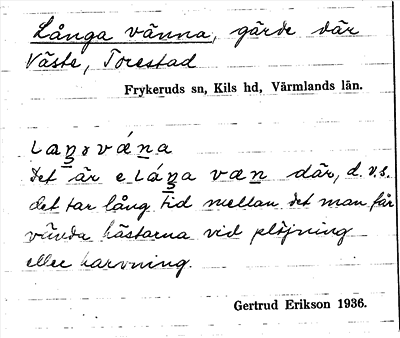 Långa vänna, gärde där
Väste, Torestad
Frykeruds sn, Kils hd, Värmlands län.
Det är e där, d.v.s.
det tar lång tid mellan det man får
vända hästarna vid plöjning
eller harvning.
Gertrud Erikson 1936.